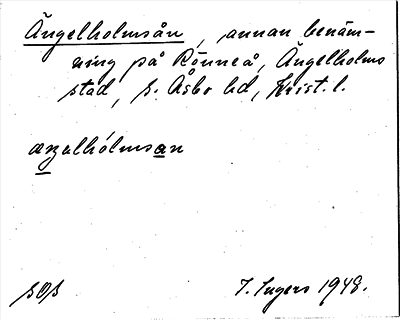 Ängelholmsån, annan benäm-
ning på Rönneå, Ängelholms
stad, s. Åsbo hd, Krist. l.
æŋəlhólmsan
sOs
I. Ingers 1948.